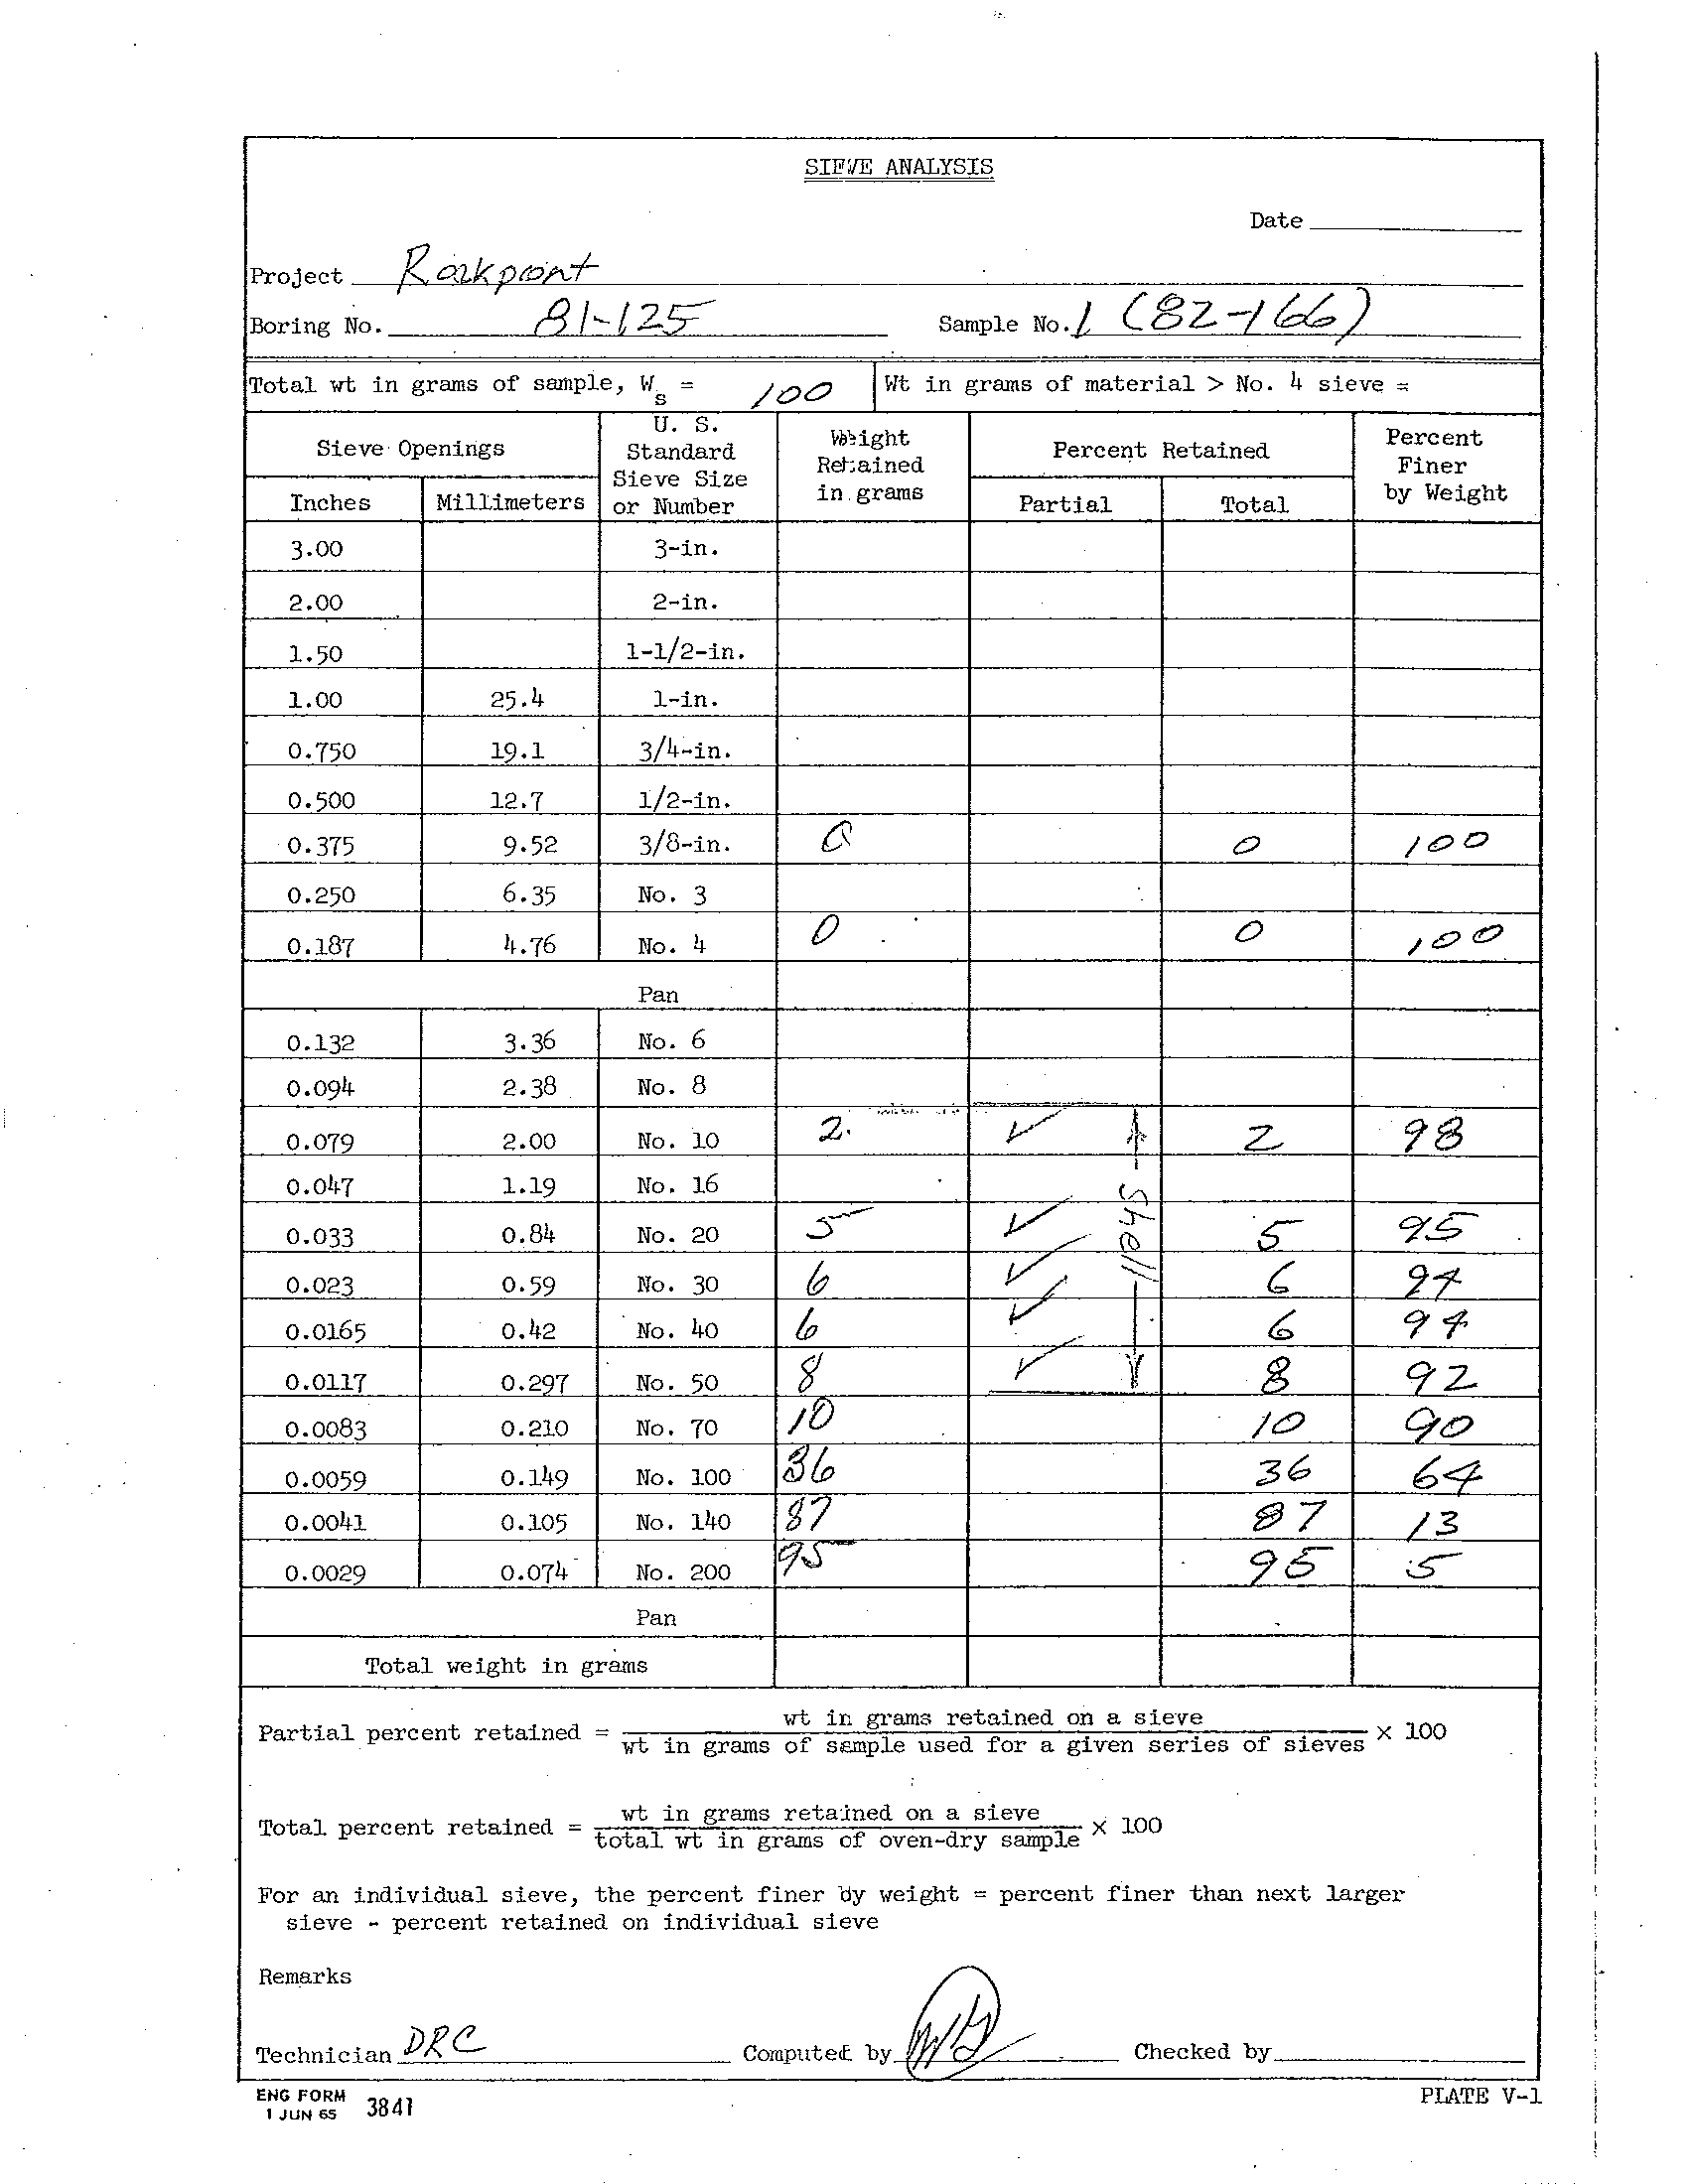 SIEVE ANALYSIS
Date
Project Rockport
Boring No. 81-125 Sample No. 1 (82-166)
Total wt in grams of sample, Ws = 100 Wt in grams of material > No. 4 sieve =
Sieve Openings U. S. Standard Sieve Size or Number Weight Retained in grams Percent Retained Percent Finer by Weight
Inches Millimeters Partial Total
3.00 3-in.
2.00 2-in.
1.50 1-1/2-in.
1.00 25.4 1-in.
0.750 19.1 3/4-in.
0.500 12.7 1/2-in.
0.375 9.52 3/8-in. 0 0 100
0.250 6.35 No. 3
0.187 4.76 No. 4 0 0 100
Pan
0.132 3.36 No. 6
0.094 2.38 No. 8
0.079 2.00 No. 10 2. ✓ 2 98
0.047 1.19 No. 16
shell
0.033 0.84 No. 20 5 ✓ 5 95
0.023 0.59 No. 30 6 ✓ 6 94
0.0165 0.42 No. 40 6 ✓ 6 94
0.0117 0.297 No. 50 8 ✓ 8 92
0.0083 0.210 No. 70 10 10 90
0.0059 0.149 No. 100 36 36 64
0.0041 0.105 No. 140 87 87 13
0.0029 0.074 No. 200 95 95 5
Pan
Total weight in grams
Partial percent retained = wt in grams retained on a sieve / wt in grams of sample used for a given series of sieves × 100
Total percent retained = wt in grams retained on a sieve / total wt in grams of oven-dry sample × 100
For an individual sieve, the percent finer by weight = percent finer than next larger
sieve - percent retained on individual sieve
Remarks
Technician DRC Computed by Checked by
ENG FORM 3841 PLATE V-1
1 JUN 65